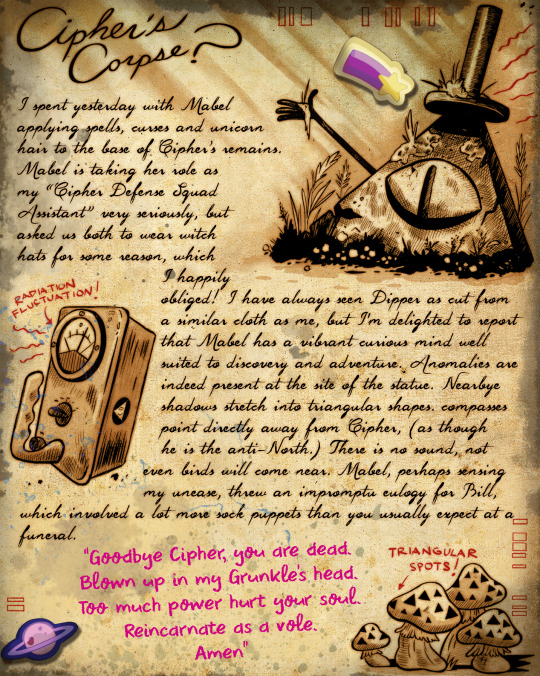 Cipher's
Corpse?
I spent yesterday with Mabel
applying spells, curses and unicorn
hair to the base of Cipher's remains.
Mabel is taking her role as
my "Cipher Defense Squad
Assistant" very seriously, but
asked us both to wear witch
hats for some reason, which
I happily
obliged! I have always seen Dipper as cut from
a similar cloth as me, but I'm delighted to report
that Mabel has a vibrant curious mind well
suited to discovery and adventure. Anomalies are
indeed present at the site of the statue. Nearbye
shadows stretch into triangular shapes. compasses
point directly away from Cipher, (as though
he is the anti-North.) There is no sound, not
even birds will come near. Mabel, perhaps sensing
my unease, threw an impromptu eulogy for Bill,
which involved a lot more sock puppets than you usually expect at a
funeral.
RADIATION
FLUCTUATION!
"Goodbye Cipher, you are dead.
Blown up in my Grunkle's head.
Too much power hurt your soul.
Reincarnate as a vole.
Amen"
TRIANGULAR
SPOTS!